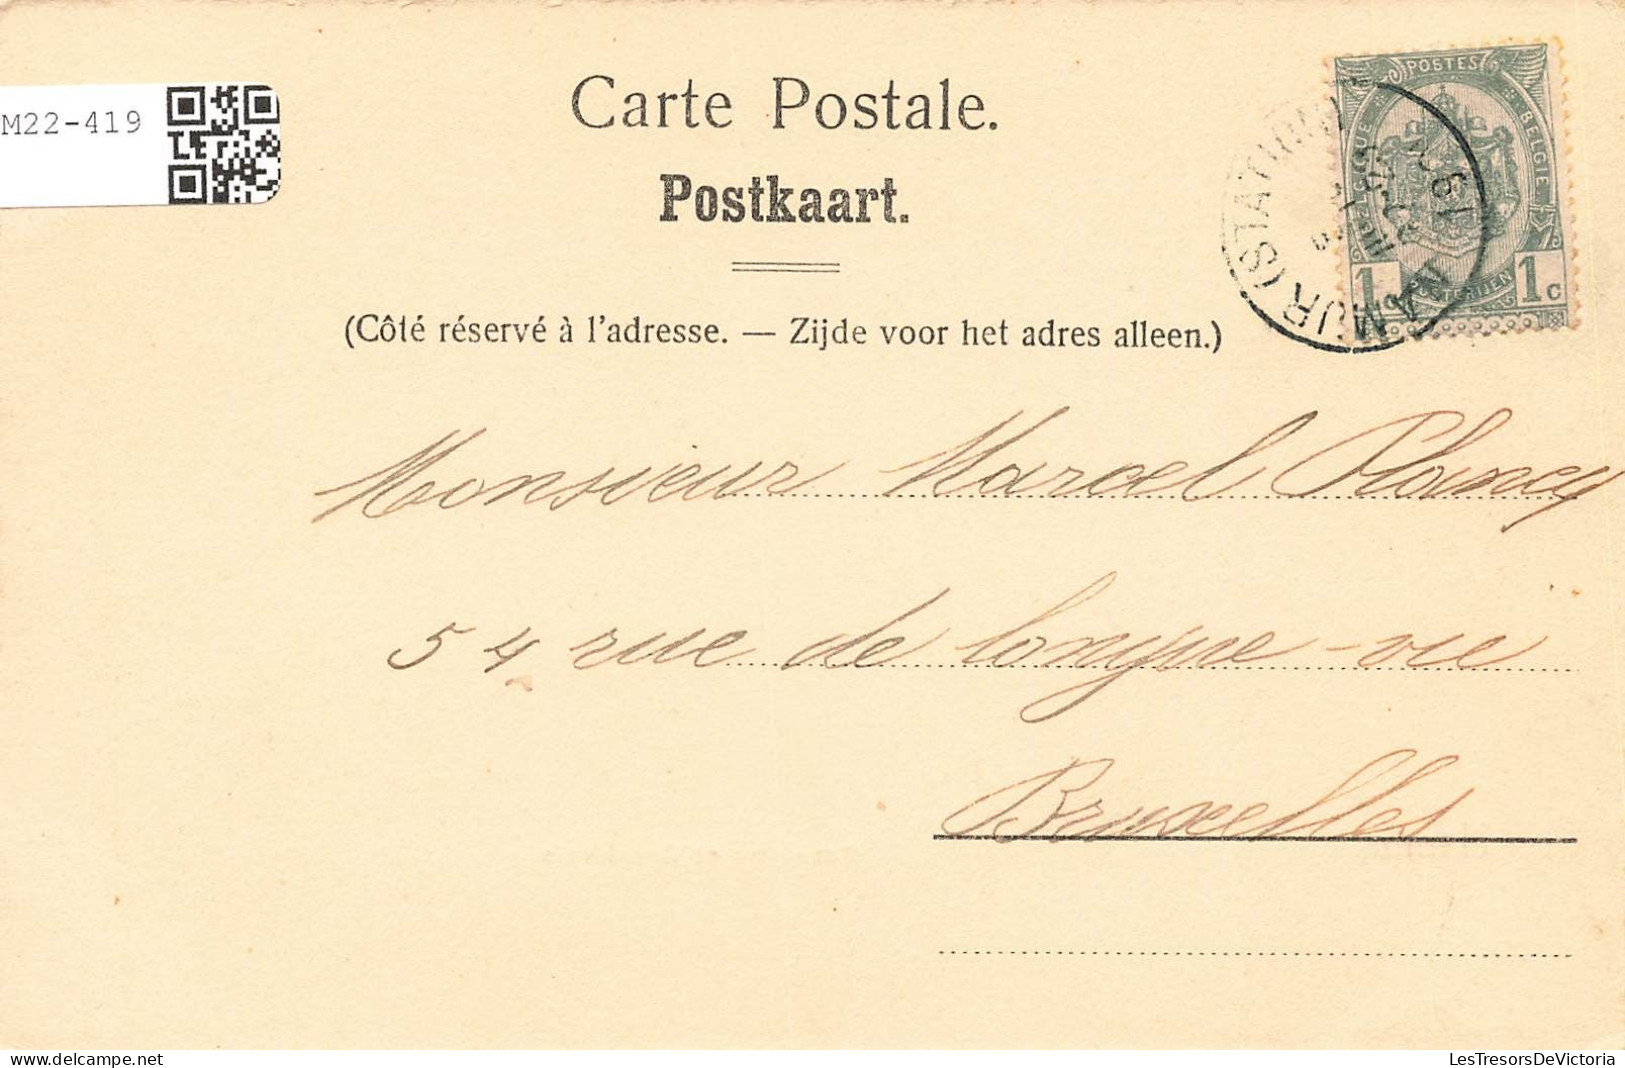 M22-419
Carte Postale.
Postkaart.
(Côté réservé à l'adresse. — Zijde voor het adres alleen.)
POSTES
BELGIQUE
BELGIE
POSTERIJEN
1c 1c
NAMUR (STATION)
Monsieur Marcel Plancq
54 rue de longue-vie
Bruxelles
LesTresorsDeVictoria
delcampe.net